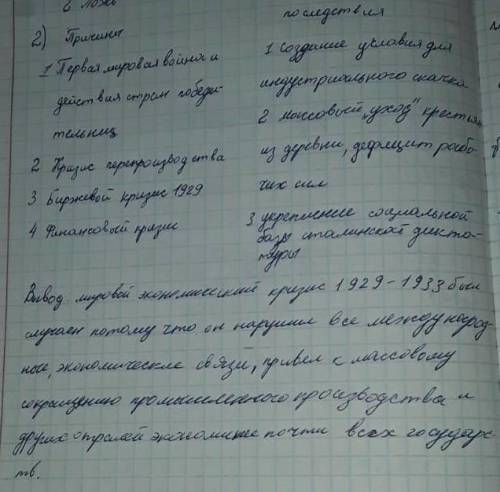 2 Ложь
последствия
2) Причины
1 Первая мировая война и
действия стран победи-
тельниц
2 Кризис перепроизводства
3 Биржевой кризис 1929
4 Финансовый кризис
1 Создание условия для
индустриального скачка
2 массовый "уход" крестьян
из деревни, дефицит рабо-
чих сил
3 укрепление социальной
базы сталинской дикта-
туры
Вывод мировой экономический кризис 1929-1933 был
случаен потому что он нарушил все международ
ные, экономические связи, привел к массовому
сокращению промышленного производства и
других отраслей экономике почти всех государс
тв.